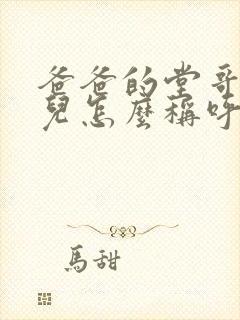 爸爸的堂哥
兒怎麼稱呼
馬甜